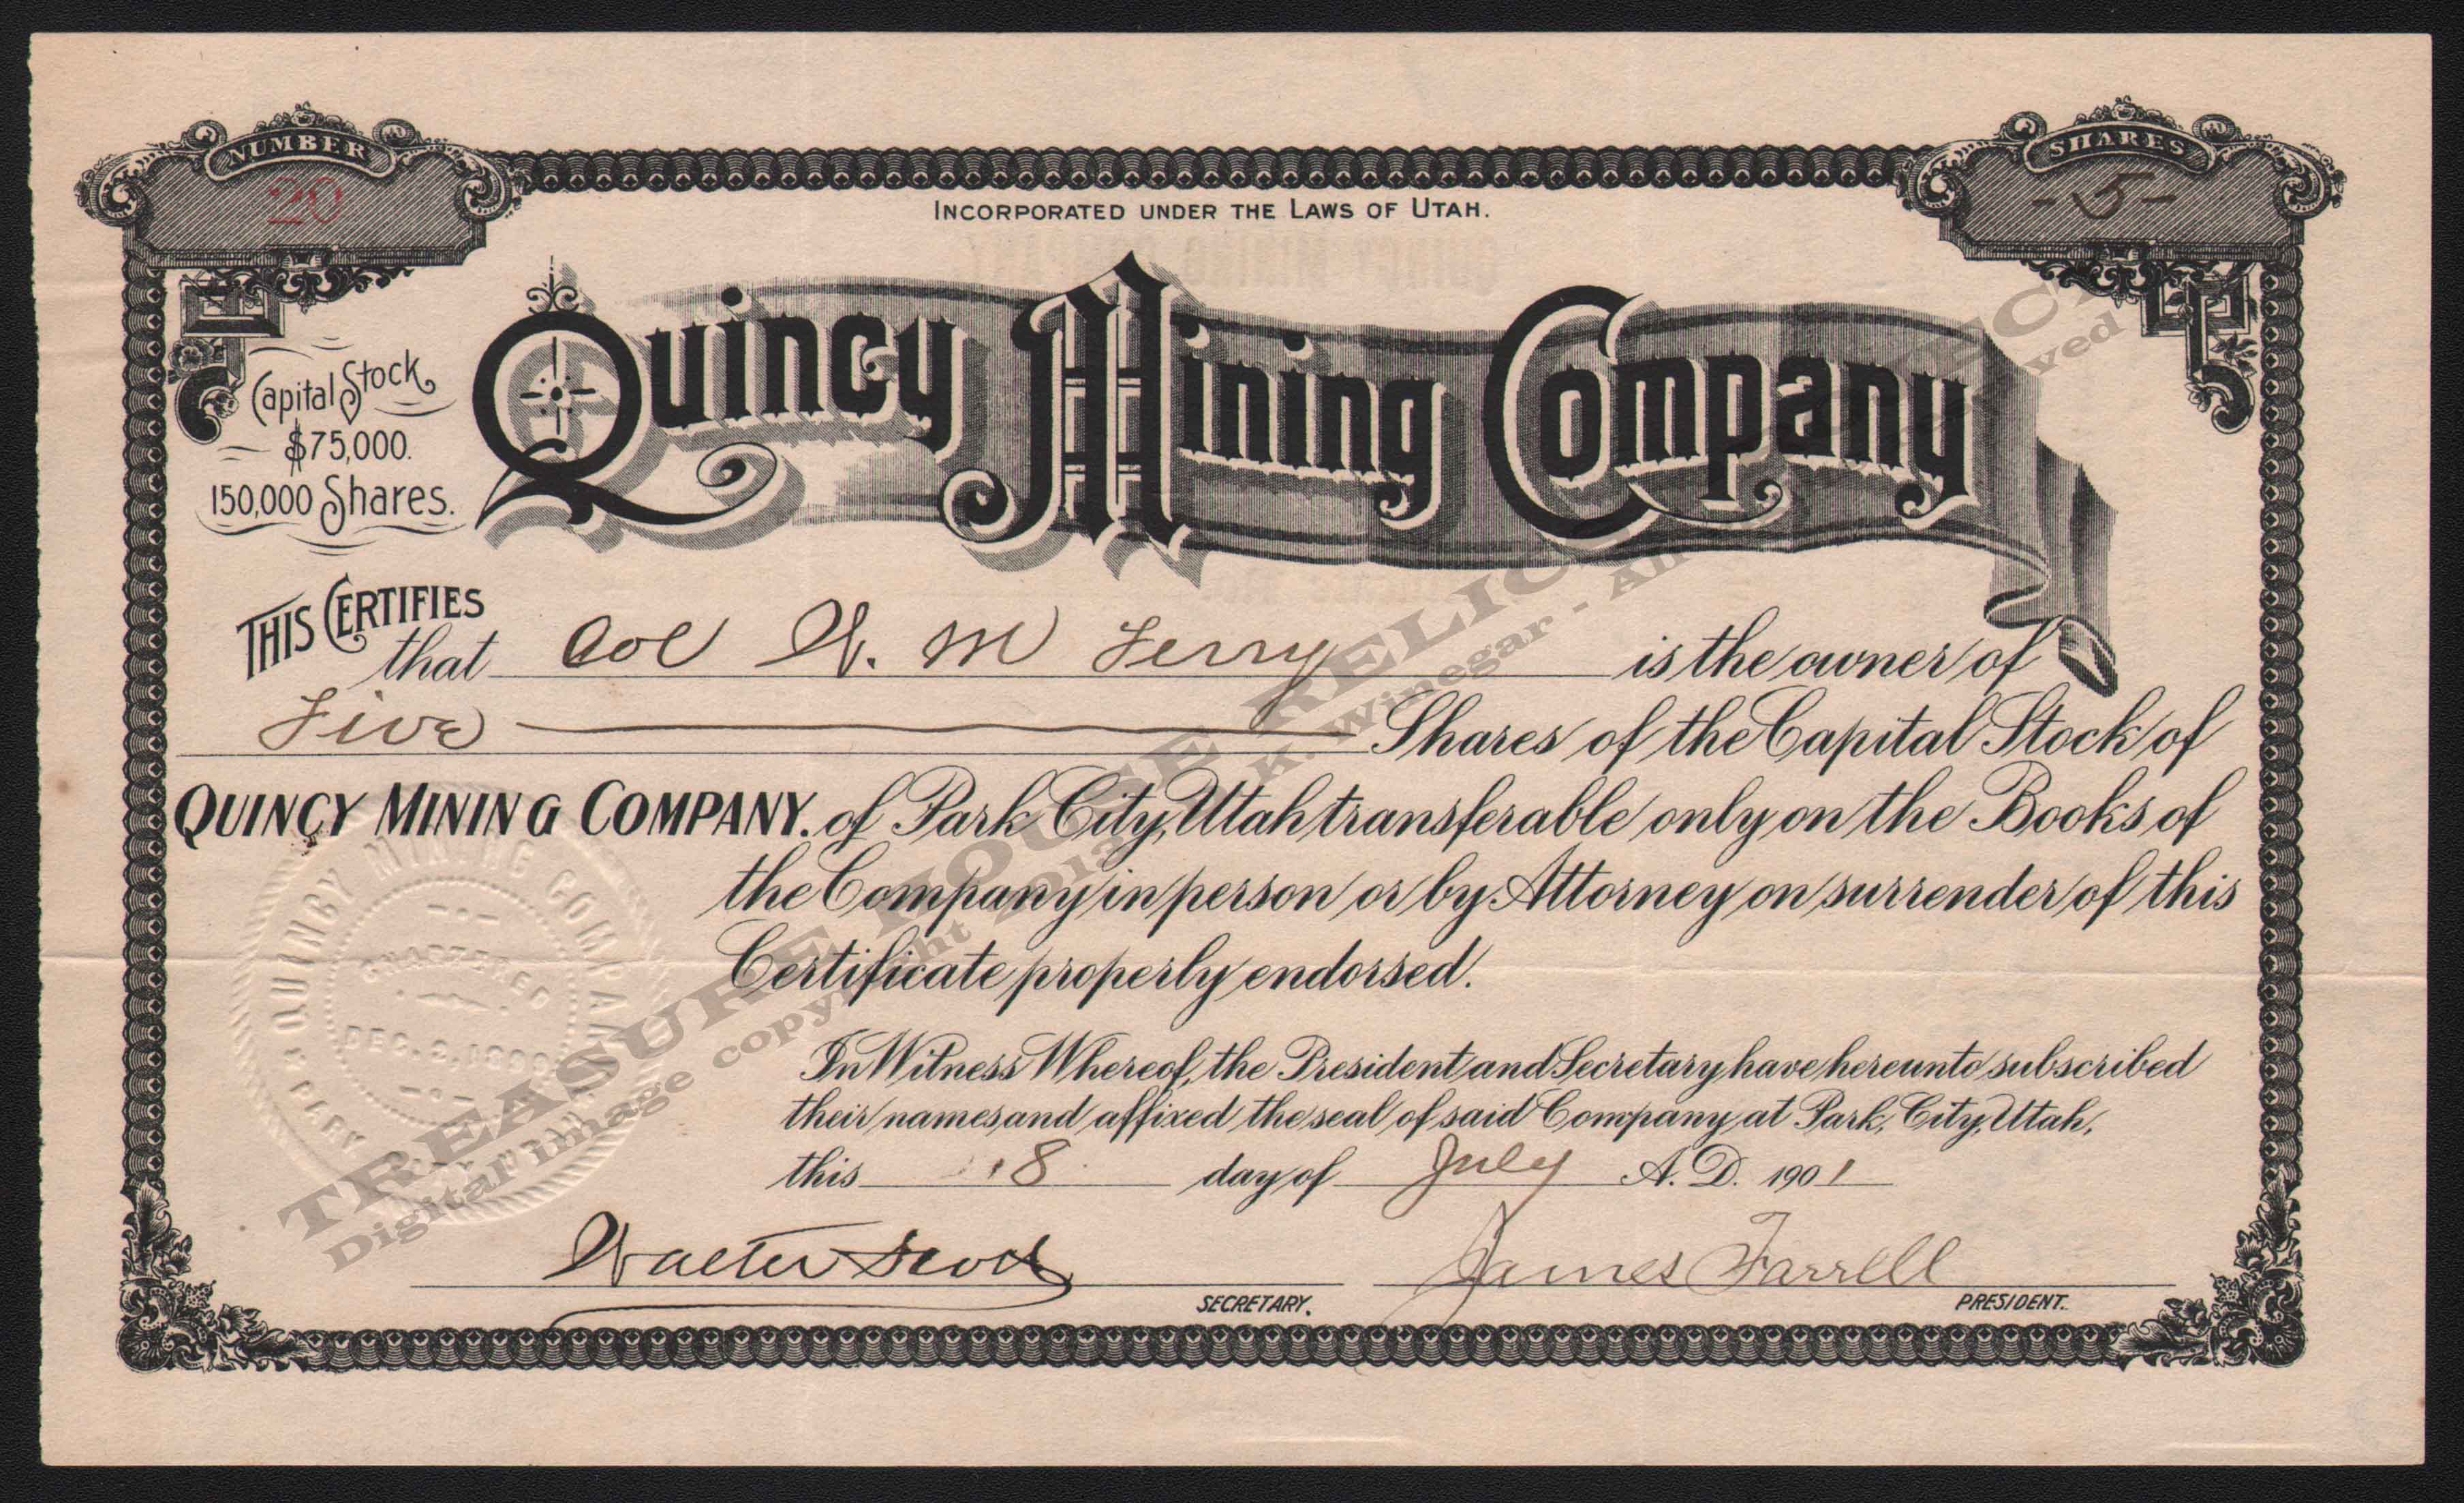 NUMBER
20
SHARES
-5-
INCORPORATED UNDER THE LAWS OF UTAH.
Quincy Mining Company
Capital Stock
$75,000.
150,000 Shares.
THIS CERTIFIES
that Col W. M Ferry is the owner of
Five Shares of the Capital Stock of
QUINCY MINING COMPANY. of Park City, Utah transferable only on the Books of
the Company in person or by Attorney on surrender of this
Certificate properly endorsed.
In Witness Whereof, the President and Secretary have hereunto subscribed
their names and affixed the seal of said Company at Park, City, Utah,
this 18 day of July A. D. 1901
Walter Scott James Farrell
SECRETARY. PRESIDENT.
QUINCY MINING COMPANY
CHARTERED
PARK
TREASURE HOUSE RELICS
Digital image copyright K. Winegar - All